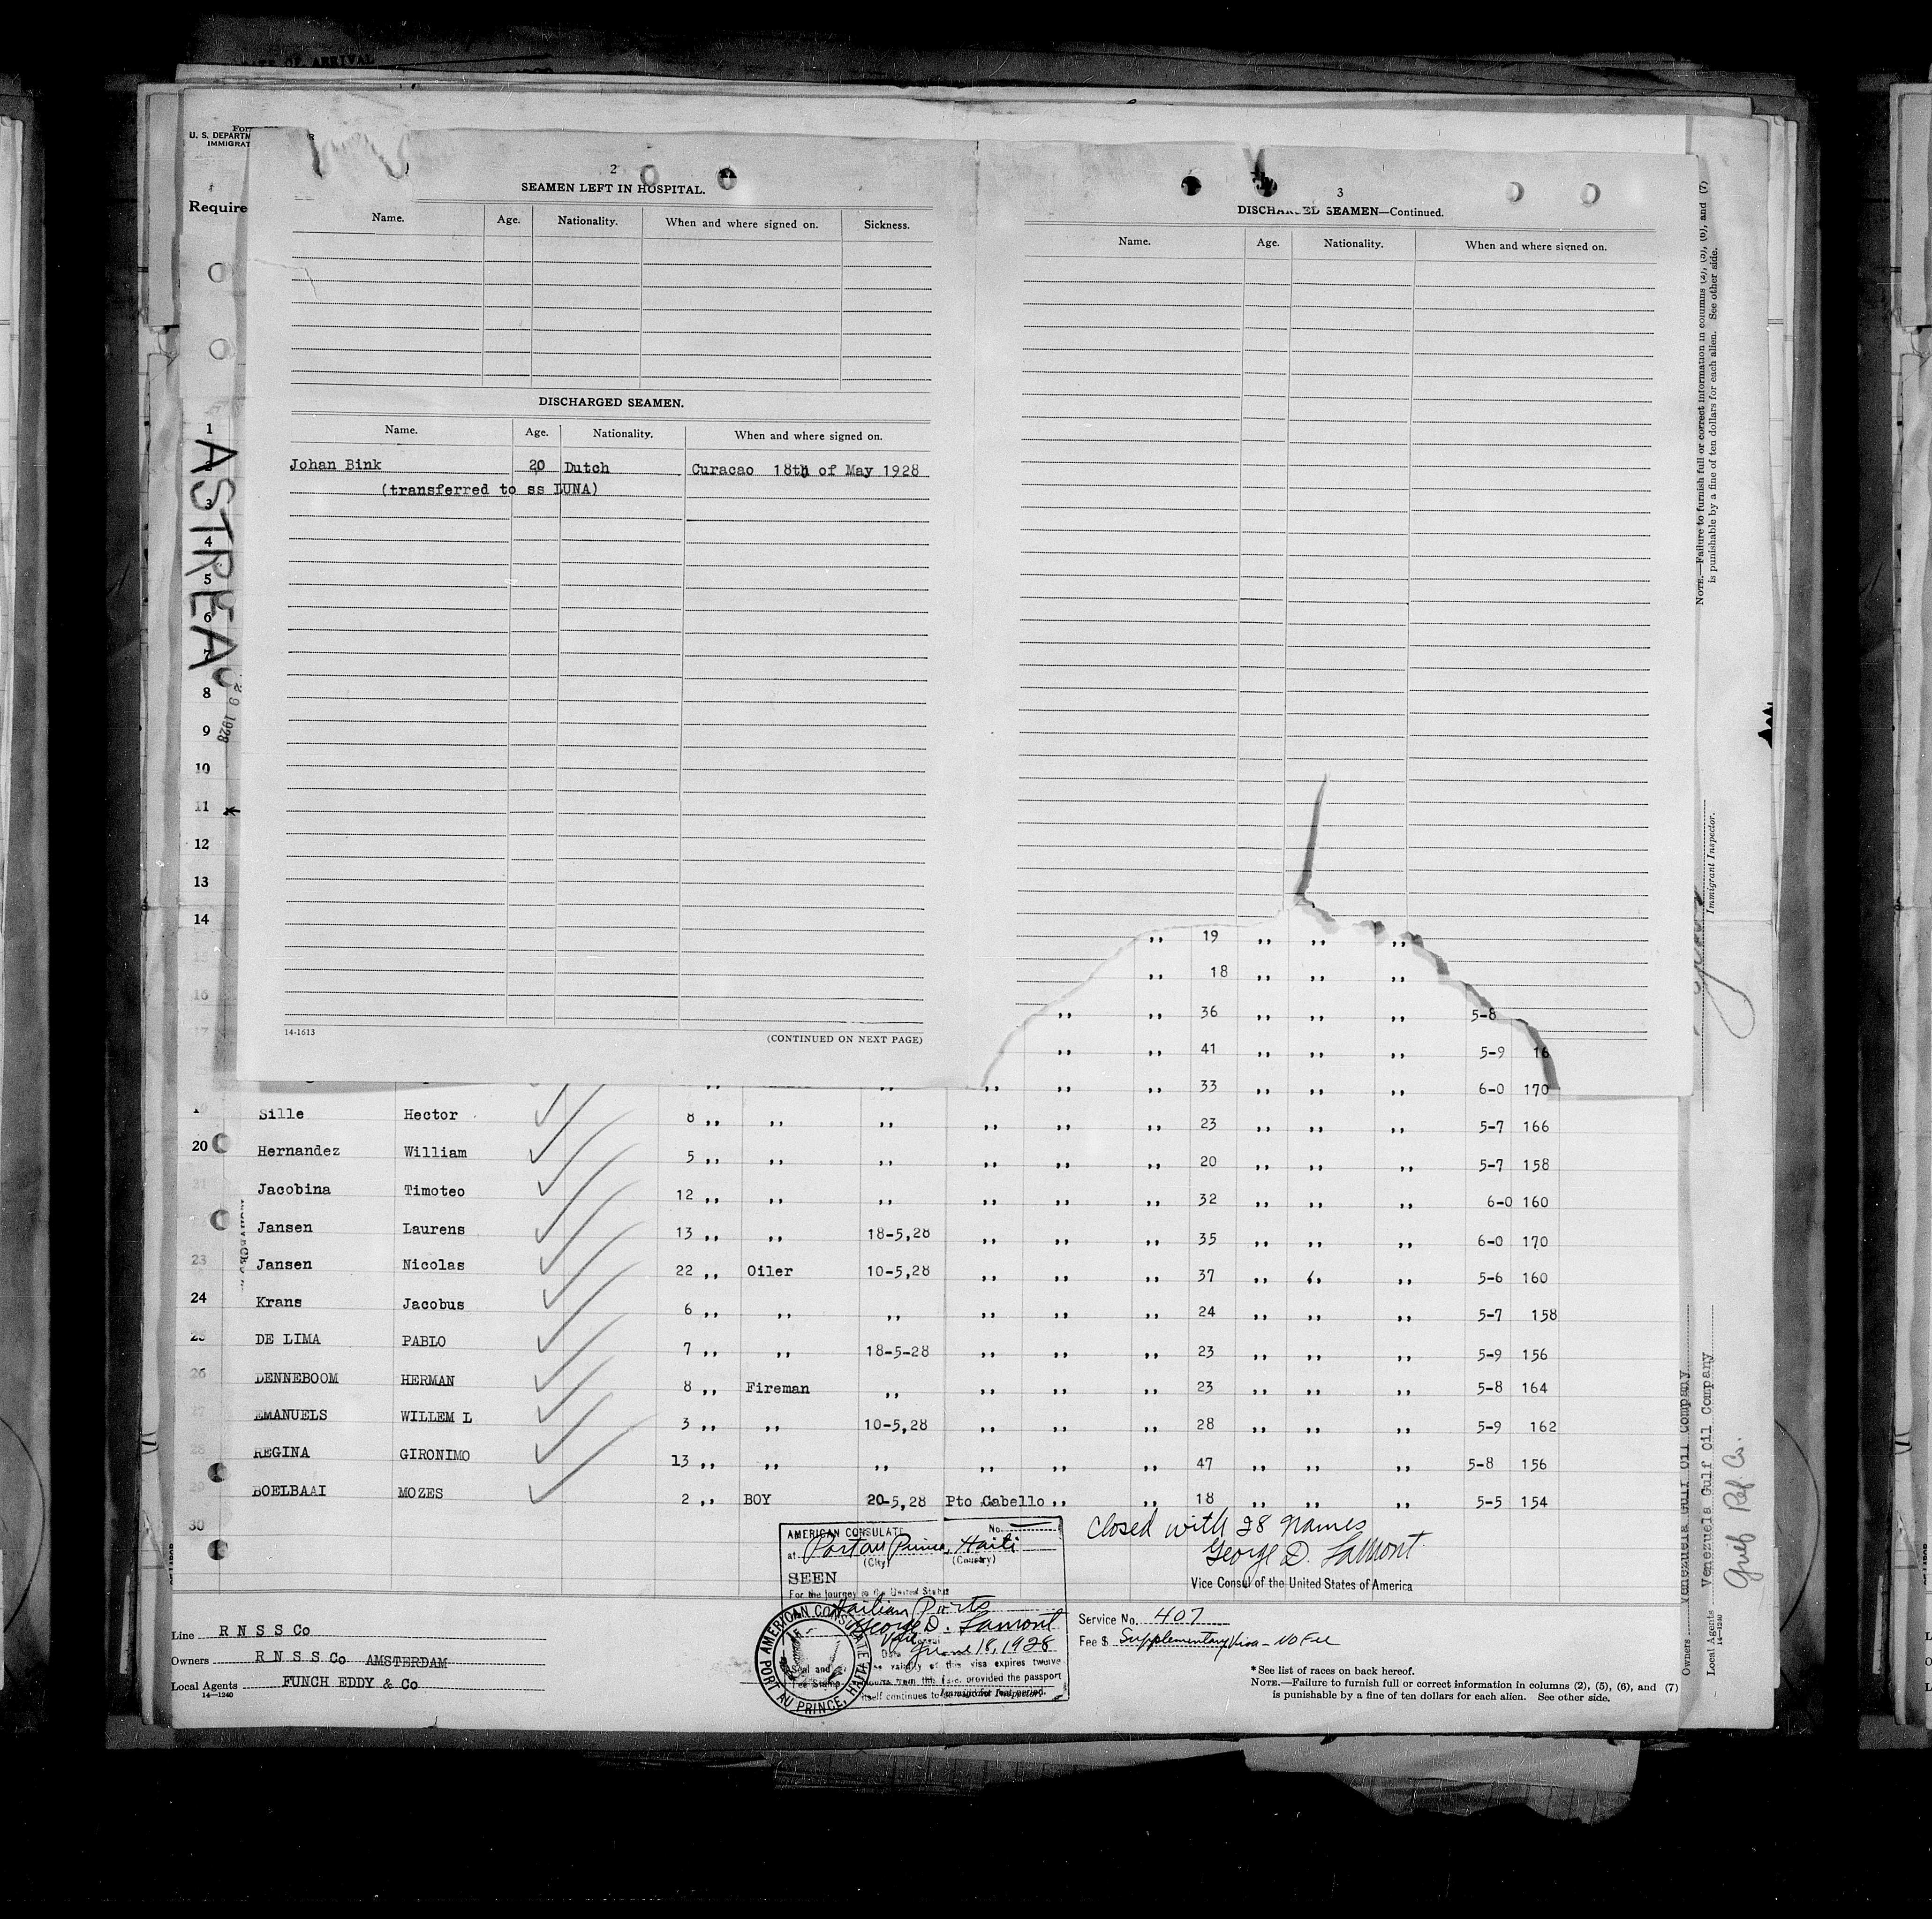 DATE OF ARRIVAL
Form
U. S. DEPARTM
IMMIGRAT
Require
2
SEAMEN LEFT IN HOSPITAL.
Name. Age. Nationality. When and where signed on. Sickness.
DISCHARGED SEAMEN.
Name. Age. Nationality. When and where signed on.
Johan Bink 20 Dutch Curacao 18th of May 1928
(transferred to ss LUNA)
14-1613
(CONTINUED ON NEXT PAGE)
3
DISCHARGED SEAMEN—Continued.
Name. Age. Nationality. When and where signed on.
ASTREA
29 1928
1
3
4
5
6
7
8
9
10
11
12
13
14
15
16
17
,, 19 ,, ,, ,,
,, 18 ,, ,, ,,
,, ,, 36 ,, ,, ,, 5-8
,, ,, 41 ,, ,, ,, 5-9 16
,, ,, ,, ,, ,, 33 ,, ,, ,, 6-0 170
Sille Hector 8 ,, ,, ,, ,, ,, ,, 23 ,, ,, ,, 5-7 166
20 Hernandez William 5 ,, ,, ,, ,, ,, ,, 20 ,, ,, ,, 5-7 158
21 Jacobina Timoteo 12 ,, ,, ,, ,, ,, ,, 32 ,, ,, ,, 6-0 160
Jansen Laurens 13 ,, ,, 18-5,28 ,, ,, ,, 35 ,, ,, ,, 6-0 170
23 Jansen Nicolas 22 ,, Oiler 10-5,28 ,, ,, ,, 37 ,, ,, ,, 5-6 160
24 Krans Jacobus 6 ,, ,, ,, ,, ,, ,, 24 ,, ,, ,, 5-7 158
25 DE LIMA PABLO 7 ,, ,, 18-5-28 ,, ,, ,, 23 ,, ,, ,, 5-9 156
26 DENNEBOOM HERMAN 8 ,, Fireman ,, ,, ,, ,, 23 ,, ,, ,, 5-8 164
27 EMANUELS WILLEM L 3 ,, ,, 10-5,28 ,, ,, ,, 28 ,, ,, ,, 5-9 162
28 REGINA GIRONIMO 13 ,, ,, ,, ,, ,, ,, 47 ,, ,, ,, 5-8 156
29 BOELBAAI MOZES 2 ,, BOY 20-5,28 Pto Cabello ,, ,, 18 ,, ,, ,, 5-5 154
30
AMERICAN CONSULATE No.
at Port au Prince, Haiti
(City) (Country)
SEEN
For the journey to the United States
Haitian Ports
George D. Lamont
Vice Consul
Date June 18, 1928
The validity of this visa expires twelve
months from this date, provided the passport
itself continues to be valid for that period.
Immigrant Inspector.
Seal and
Fee Stamp
AMERICAN CONSULATE PORT AU PRINCE, HAITI
Closed with 28 names
George D. Lamont
Vice Consul of the United States of America
Service No. 407
Fee $ Supplementary Visa - No Fee
Line R N S S Co
Owners R N S S Co AMSTERDAM
Local Agents FUNCH EDDY & Co
14—1240
* See list of races on back hereof.
NOTE.—Failure to furnish full or correct information in columns (2), (5), (6), and (7)
is punishable by a fine of ten dollars for each alien. See other side.
NOTE.—Failure to furnish full or correct information in columns (2), (5), (6), and (7)
is punishable by a fine of ten dollars for each alien. See other side.
Immigrant Inspector.
Owners Venezuela Gulf Oil Company
Local Agents Venezuela Gulf Oil Company
14-1240
Gulf Ref. Co.